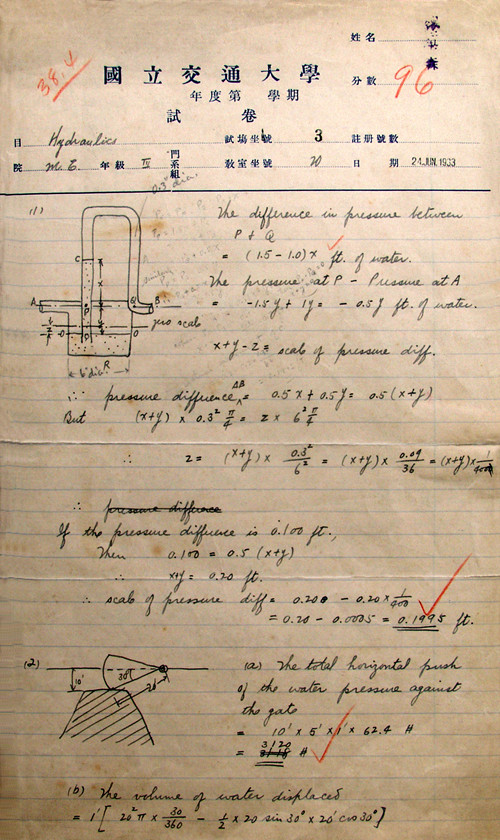 38.4
姓名
國立交通大學
分數 96
年度第 學期
試卷
目 Hydraulics 試場坐號 3 註册號數
院 M. E. 年級 IV 門系組 教室坐號 20 日期 24 JUN. 1933
0.3" dia.
(1)
The difference in pressure between
P & Q
= (1.5 - 1.0)x ft. of water.
The pressure at P - Pressure at A
= -1.5y + 1y = - 0.5y ft. of water.
x+y-z = scale of pressure diff.
C
A
P
Q
B
x
y
z
O
O
zero scale
R
6" dia.
∴ pressure difference AB = 0.5x + 0.5y = 0.5(x+y)
But (x+y) x 0.3² π/4 = z x 6² π/4
∴ z = (x+y)x 0.3²/6² = (x+y)x 0.09/36 = (x+y)x 1/400
∴ pressure difference
If the pressure difference is 0.100 ft.,
Then 0.100 = 0.5 (x+y)
∴ x+y = 0.20 ft.
∴ scale of pressure diff = 0.200 - 0.20 x 1/400
= 0.20 - 0.0005 = 0.1995 ft.
(2)
10'
30°
20'
(a) The total horizontal push
of the water pressure against
the gate
= 10' x 5' x 1' x 62.4 #
= 3120 #
(b) The volume of water displaced
= 1' [ 20² π x 30/360 - 1/2 x 20 sin 30° x 20' cos 30° ]